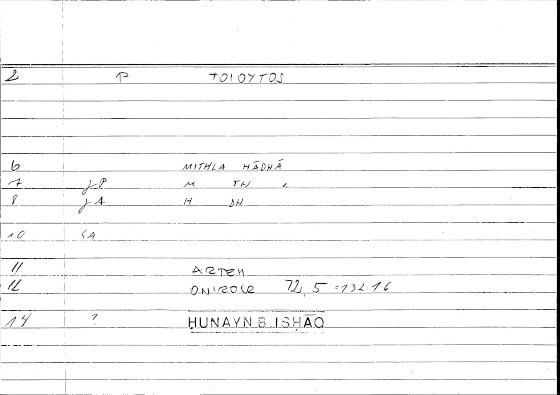 2 P TOIOYTOS
6 MITHLA HĀDHĀ
7 JP M TH
8 JA H DH
10 SA
11 ARTEM
12 ONIROCR 72, 5 = 132.16
14 ? HUNAYN B. ISḤĀQ